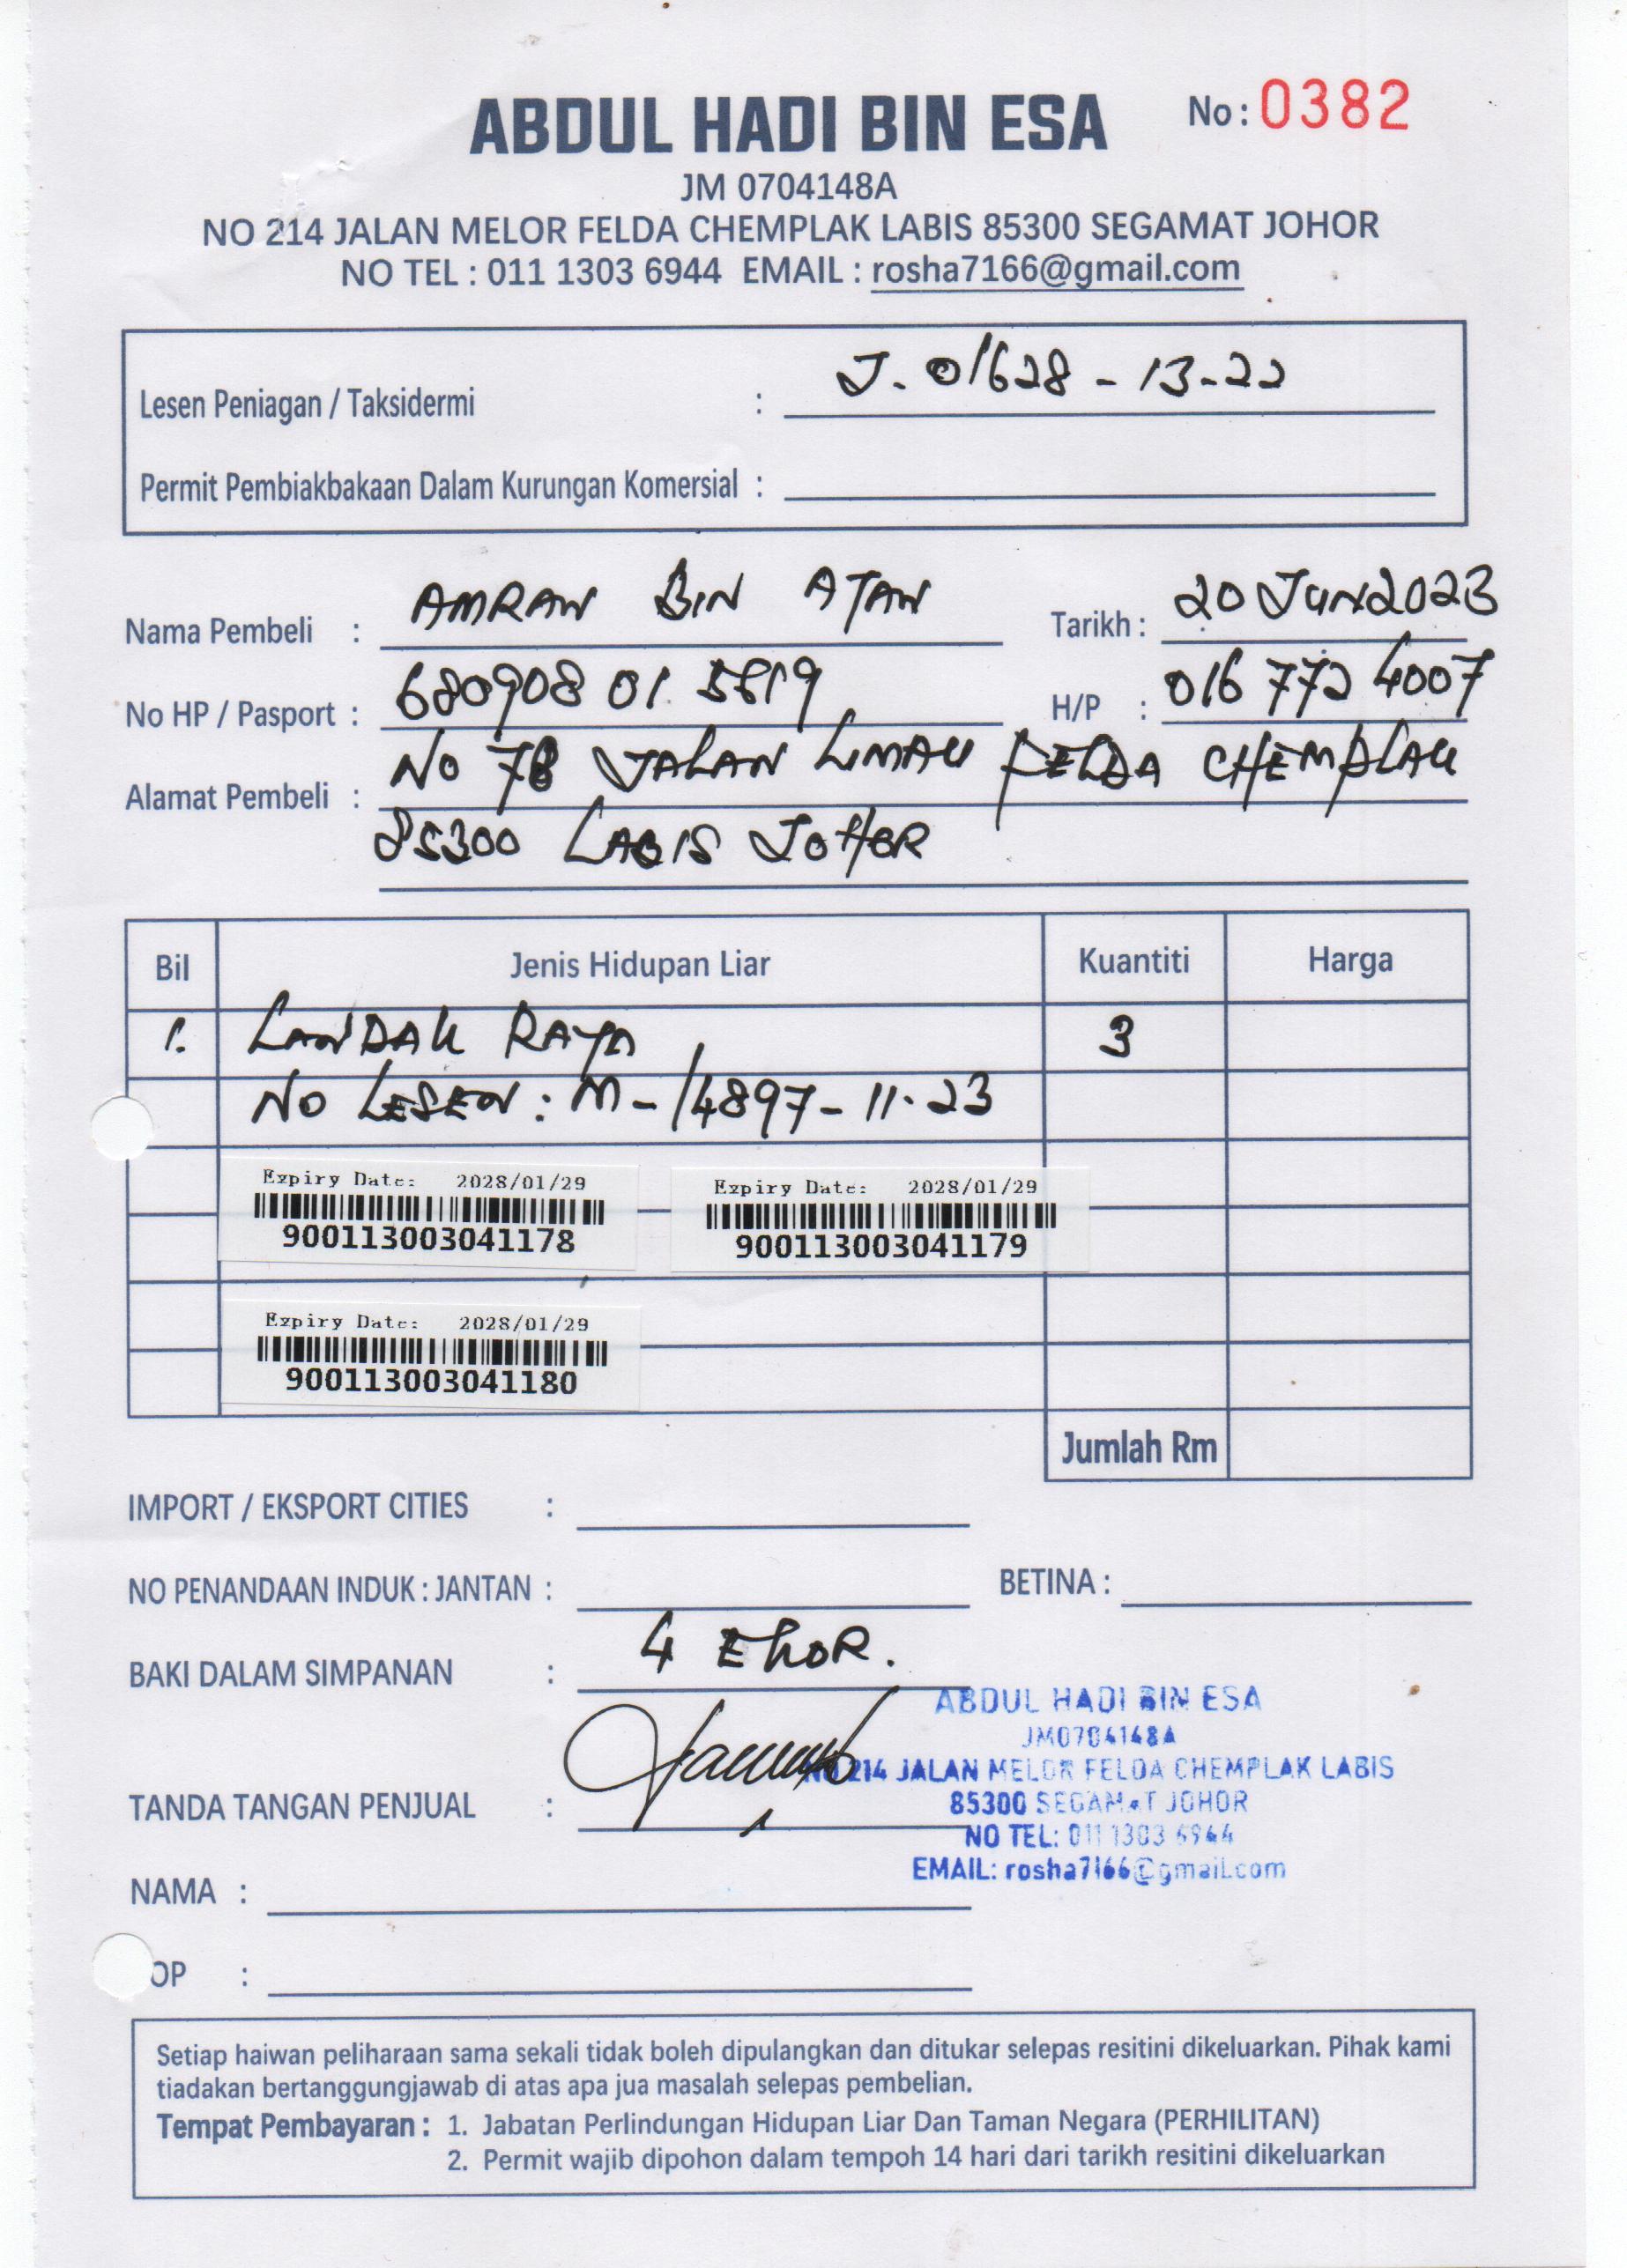 ABDUL HADI BIN ESA No : 0382
JM 0704148A
NO 214 JALAN MELOR FELDA CHEMPLAK LABIS 85300 SEGAMAT JOHOR
NO TEL : 011 1303 6944 EMAIL : rosha7166@gmail.com
Lesen Peniagan / Taksidermi : J-01628-13-22
Permit Pembiakbakaan Dalam Kurungan Komersial :
Nama Pembeli : AMRAN BIN ATAN Tarikh : 20 Jun 2023
No HP / Pasport : 680908 01 5819 H/P : 016 772 4007
Alamat Pembeli : NO 78 JALAN LIMAU FELDA CHEMPLAK
85300 LABIS JOHOR
Bil Jenis Hidupan Liar Kuantiti Harga
1. LANDAK RAYA 3
NO LESEN : M-14897-11-23
Expiry Date: 2028/01/29 Expiry Date: 2028/01/29
900113003041178 900113003041179
Expiry Date: 2028/01/29
900113003041180
Jumlah Rm
IMPORT / EKSPORT CITIES :
NO PENANDAAN INDUK : JANTAN : BETINA :
BAKI DALAM SIMPANAN : 4 EKOR.
ABDUL HADI BIN ESA
JM0704148A
NO 214 JALAN MELOR FELDA CHEMPLAK LABIS
85300 SEGAMAT JOHOR
TANDA TANGAN PENJUAL :
NO TEL: 011 1303 6944
EMAIL: rosha7166@gmail.com
NAMA :
OP :
Setiap haiwan peliharaan sama sekali tidak boleh dipulangkan dan ditukar selepas resitini dikeluarkan. Pihak kami
tiadakan bertanggungjawab di atas apa jua masalah selepas pembelian.
Tempat Pembayaran : 1. Jabatan Perlindungan Hidupan Liar Dan Taman Negara (PERHILITAN)
2. Permit wajib dipohon dalam tempoh 14 hari dari tarikh resitini dikeluarkan